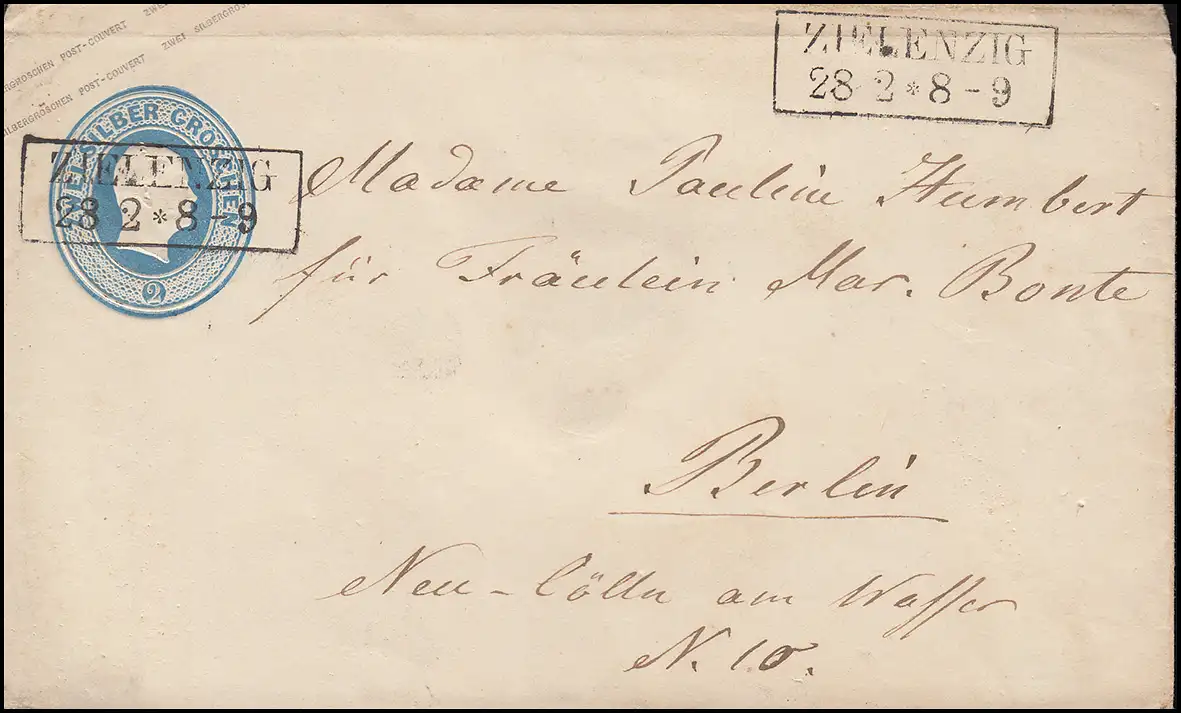 ZWEI SILBERGROSCHEN POST-COUVERT ZWEI
SILBERGROSCHEN POST-COUVERT ZWEI SILBERGROSCHEN
ZWEI SILBER GROSCHEN
2
ZIELENZIG
28 2 * 8-9
ZIELENZIG
28 2 * 8-9
Madame Pauline Humbert
für Fräulein Mar. Bonte
Berlin
Neu-Cölln am Wasser
N. 10.